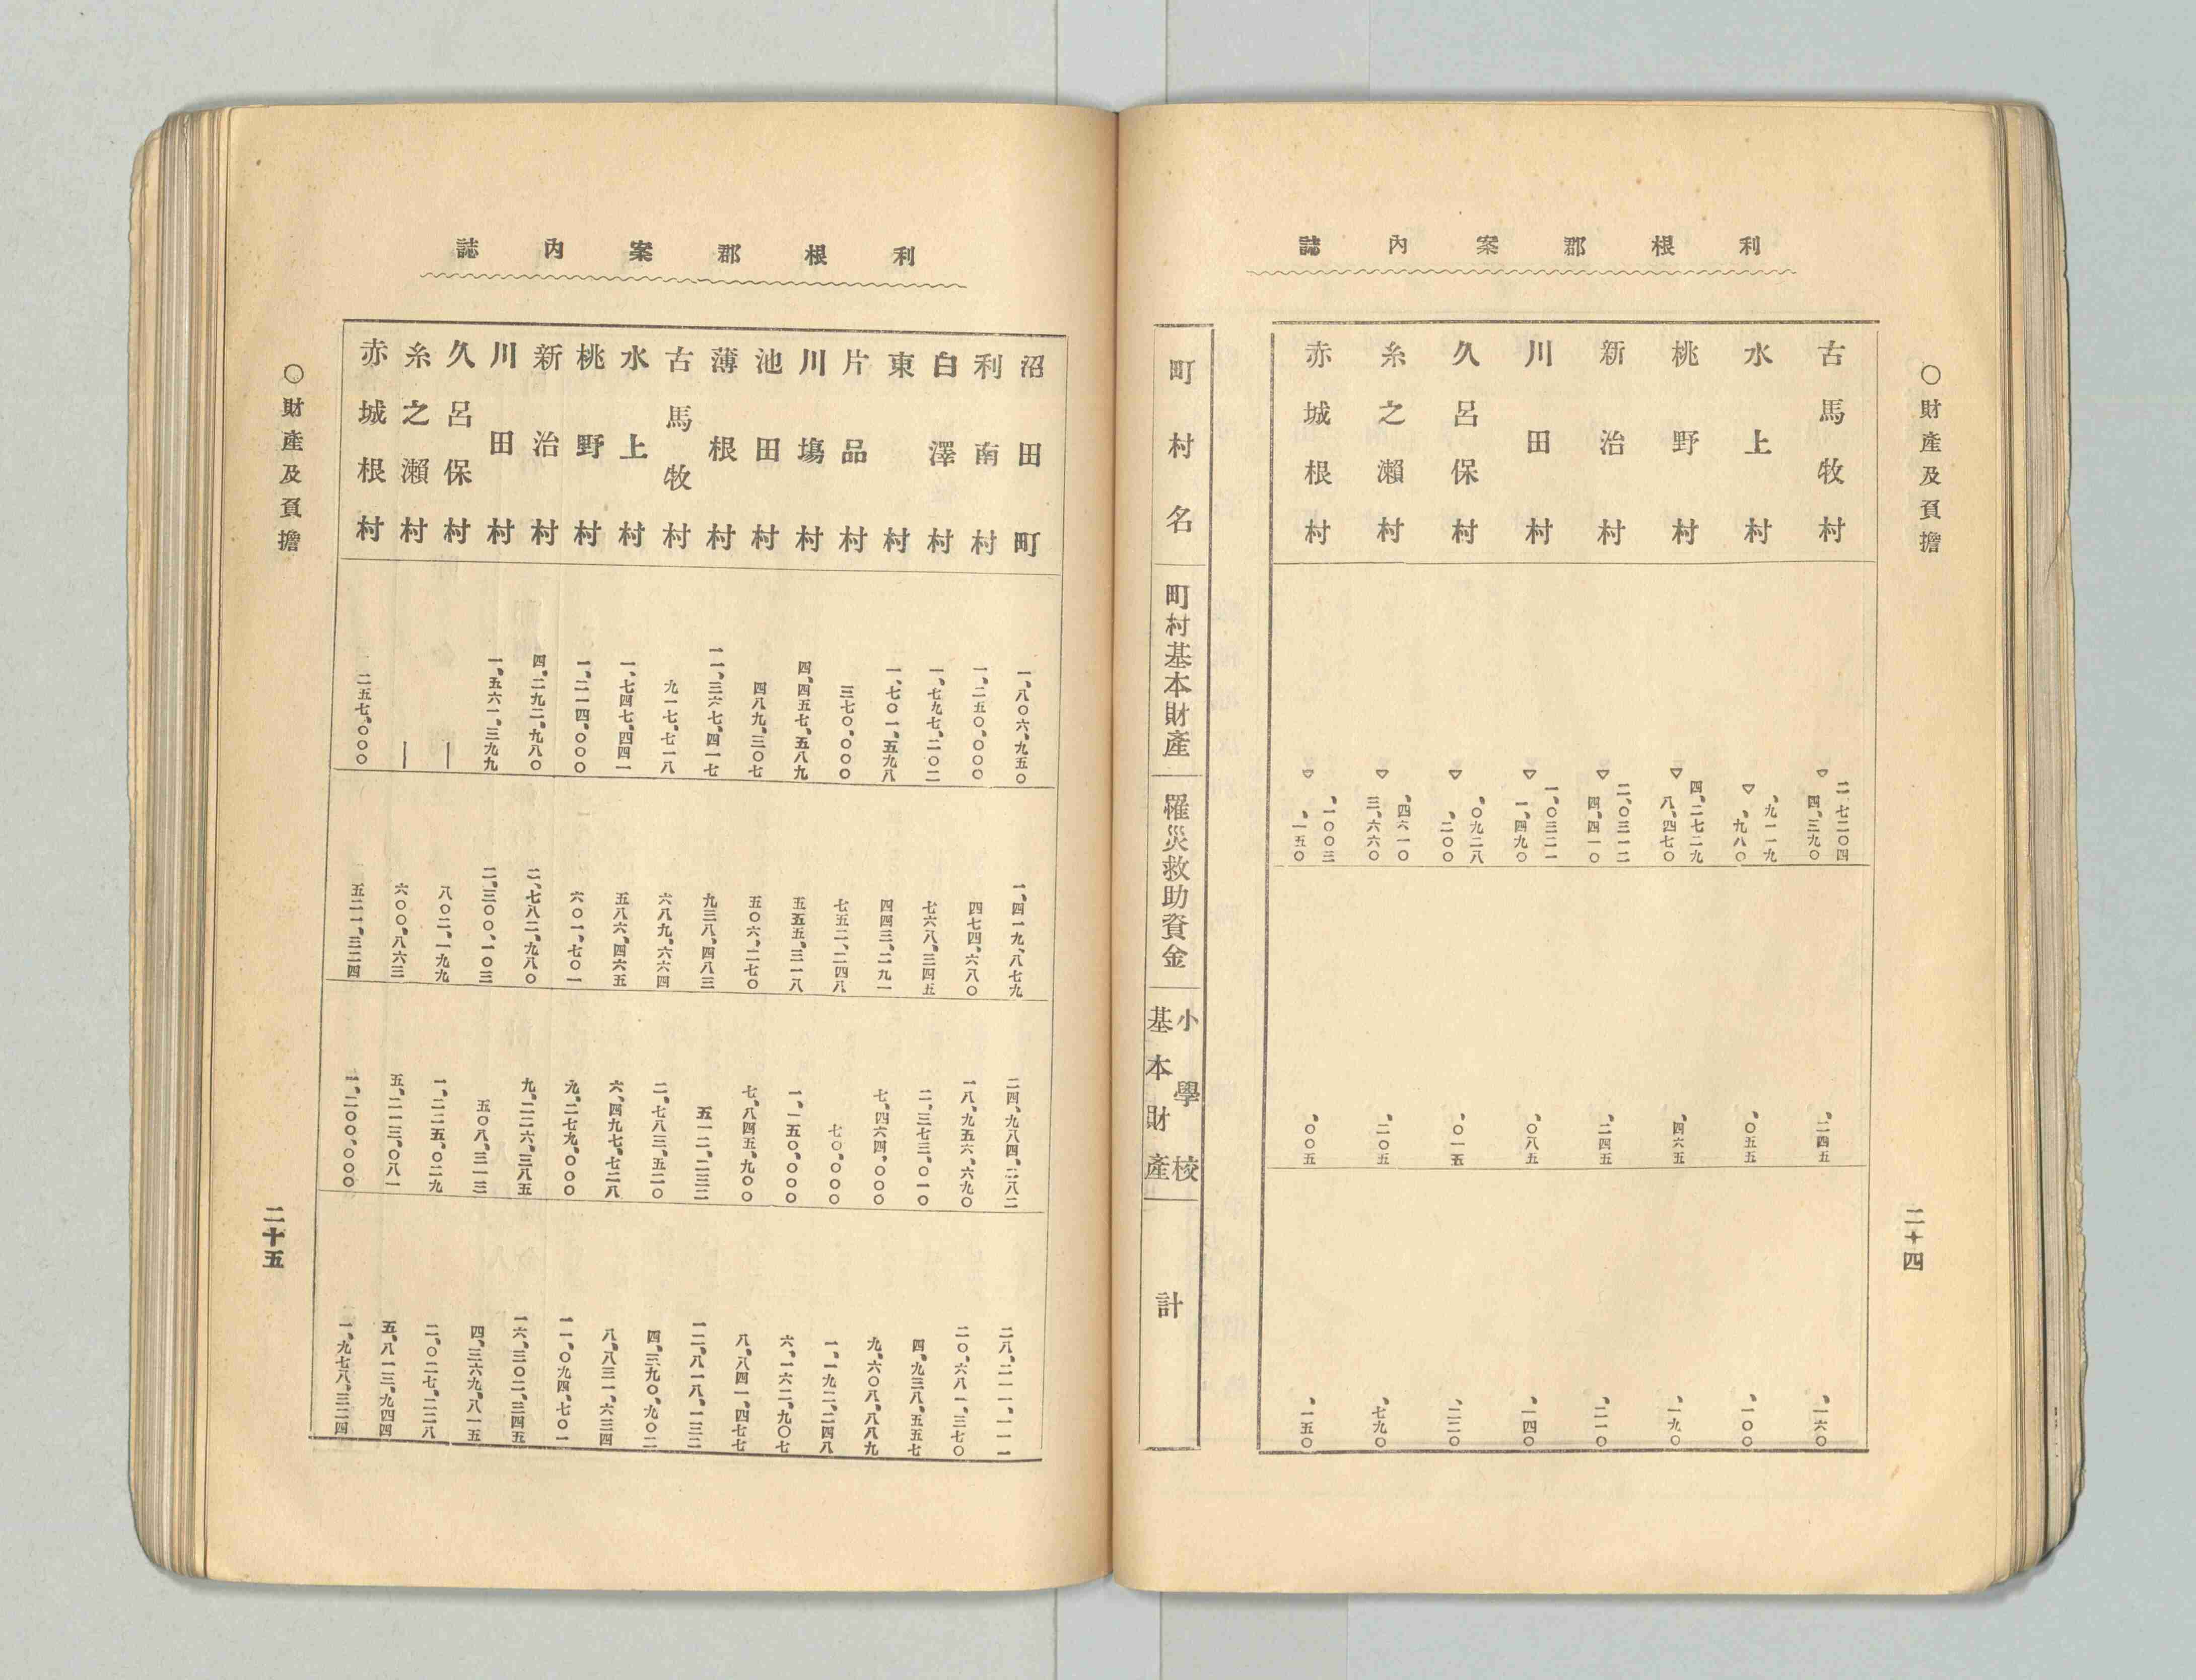 利根郡案內誌
○財產及負擔
古馬牧村 二、七二〇四 ▽四、三九〇 、二四五 、一六〇
水上村 、九一一九 ▽、九八〇 、〇五五 、一〇〇
桃野村 四、二七二九 ▽八、四七〇 、四六五 、一九〇
新治村 二、〇三一二 ▽四、四一〇 、二四五 、二一〇
川田村 一、〇三二一 ▽一、四九〇 、〇八五 、一四〇
久呂保村 、〇九二八 ▽、二〇〇 、〇一五 、二二〇
糸之瀨村 、四六一〇 ▽三、六六〇 、二〇五 、七九〇
赤城根村 、一〇〇三 ▽、一五〇 、〇〇五 、一五〇
町村名 町村基本財產 罹災救助資金 小學校基本財產 計
二十四
利根郡案內誌
沼田町 一、八〇六、九五〇 一、四一九、八七九 二四、九八四、二八二 二八、二一一、一一一
利南村 一、二五〇、〇〇〇 四七四、六八〇 一八、九五六、六九〇 二〇、六八一、三七〇
白澤村 一、七九七、二〇二 七六八、三四五 二、三七三、〇一〇 四、九三八、五五七
東村 一、七〇一、五九八 四四三、二九一 七、四六四、〇〇〇 九、六〇八、八八九
片品村 三七〇、〇〇〇 七五二、二四八 七〇、〇〇〇 一、一九二、二四八
川塲村 四、四五七、五八九 五五五、三一八 一、一五〇、〇〇〇 六、一六二、九〇七
池田村 四八九、三〇七 五〇六、二七〇 七、八四五、九〇〇 八、八四一、四七七
薄根村 一一、三六七、四一七 九三八、四八三 五一二、二三二 一二、八一八、一三二
古馬牧村 九一七、七一八 六八九、六六四 二、七八三、五二〇 四、三九〇、九〇二
水上村 一、七四七、四四一 五八六、四六五 六、四九七、七二八 八、八三一、六三四
桃野村 一、二一四、〇〇〇 六〇一、七〇一 九、二七九、〇〇〇 一一、〇九四、七〇一
新治村 四、二九二、九八〇 二、七八二、九八〇 九、二二六、三八五 一六、三〇二、三四五
川田村 一、五六一、三九九 二、三〇〇、一〇三 五〇八、三一三 四、三六九、八一五
久呂保村 ― 八〇二、一九九 一、二二五、〇二九 二、〇二七、二二八
糸之瀨村 ― 六〇〇、八六三 五、二一三、〇八一 五、八一三、九四四
赤城根村 二五七、〇〇〇 五二一、三二四 一、二〇〇、〇〇〇 一、九七八、三二四
○財產及負擔
二十五